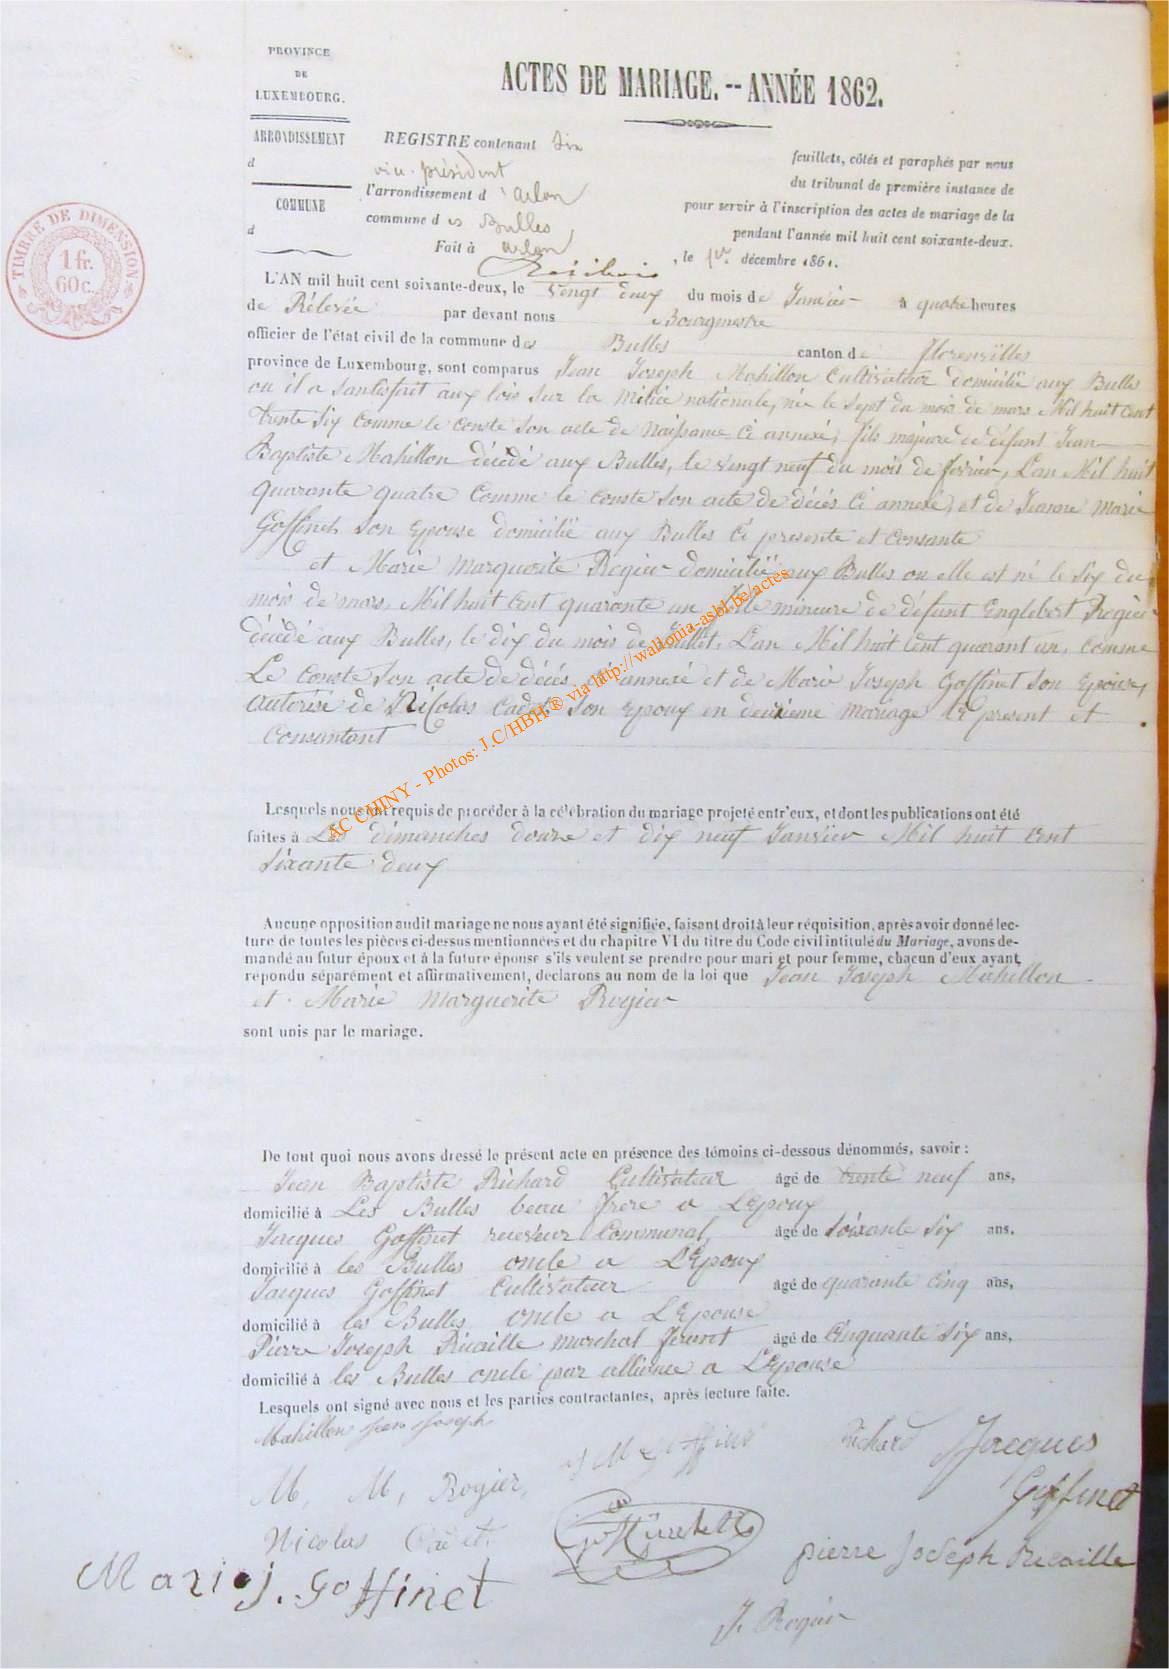 PROVINCE
DE
LUXEMBOURG.
ARRONDISSEMENT
d
COMMUNE
d
TIMBRE DE DIMENSION
1 fr.
60 c.
ACTES DE MARIAGE. -- ANNÉE 1862.
REGISTRE contenant dix feuillets, côtés et paraphés par nous
vice-président du tribunal de première instance de
l'arrondissement d'Arlon pour servir à l'inscription des actes de mariage de la
commune des Bulles pendant l'année mil huit cent soixante-deux.
Fait à Arlon, le 1er décembre 1861.
L'AN mil huit cent soixante-deux, le vingt deux du mois de Janvier à quatre heures
de Rélevée par devant nous Bourgmestre
officier de l'état civil de la commune des Bulles canton de Florenvilles
province de Luxembourg, sont comparus Jean Joseph Mahillon Cultivateur domicilié aux Bulles
ou il a santisfait aux lois sur la milice nationale, née le sept du mois de mars Mil huit cent
trente six comme le conste son acte de naissance ci annexé, fils majeure de défunt Jean
Baptiste Mahillon décédé aux Bulles, le vingt neuf du mois de fevrier, L'an Mil huit
quarante quatre comme le conste son acte de décés ci annexé, et de Jeanne Marie
Goffinet son Epouse domicilië aux Bulles ci presente et consante
et Marie Marguerite Rogier domicilië aux Bulles ou elle est né le six du
mois de mars, Mil huit cent quarante un fille mineure de défunt Englebert Rogier
décédé aux Bulles, le dix du mois de Juillet, L'an Mil huit cent quarant un, comme
Le conste son acte de décés ci annexé et de Marie Joseph Goffinet son Epouse,
autorisé de Nicolas Cadet son Epoux en deuxieme mariage ce present et
consentant
Lesquels nous ont requis de procéder à la célébration du mariage projeté entr'eux, et dont les publications ont été
faites à Les dimanches douze et dix neuf Janvier Mil huit cent
sixante deux
Aucune opposition audit mariage ne nous ayant été signifiée, faisant droit à leur réquisition, après avoir donné lec-
ture de toutes les pièces ci-dessus mentionnées et du chapitre VI du titre du Code civil intitulé du Mariage, avons de-
mandé au futur époux et à la future épouse s'ils veulent se prendre pour mari et pour femme, chacun d'eux ayant
repondu séparément et affirmativement, declarons au nom de la loi que Jean Joseph Mahillon
et Marie Marguerite Rogier
sont unis par le mariage.
De tout quoi nous avons dressé le présent acte en présence des témoins ci-dessous dénommés, savoir :
Jean Baptiste Richard Cultivateur âgé de trente neuf ans,
domicilié à Les Bulles beau frere a L'Epoux
Jacques Goffinet receveur Communal, âgé de soixante six ans.
domicilié à les Bulles oncle a L'Epoux
Jacques Goffinet Cultivateur âgé de quarante cinq ans,
domicilié à les Bulles oncle a L'Epouse
Pierre Joseph Ricaille marchal ferrant âgé de Cinquante six ans,
domicilié à les Bulles oncle par alliance a L'Epouse
Lesquels ont signé avec nous et les parties contractantes, après lecture faite.
Mahillon Jean Joseph
J M Goffine
Richard
Jacques
Goffinet
M, M, Rogier,
Nicolas Cadet.
pierre Joseph Ricaille
Marie j. Goffinet
J. Rogier
AC CHINY - Photos: J.C/HBH® via http://wallonia-asbl.be/actes